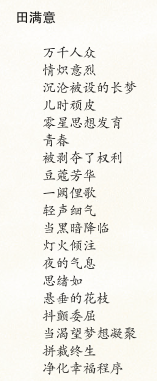 田满意
万千人众
情炽意烈
沉沦被设的长梦
儿时顽皮
零星思想发育
青春
被剥夺了权利
豆蔻芳华
一阕俚歌
轻声细气
当黑暗降临
灯火倾注
夜的气息
思绪如
悬垂的花枝
抖颤委屈
当渴望梦想凝聚
拼裁终生
净化幸福程序